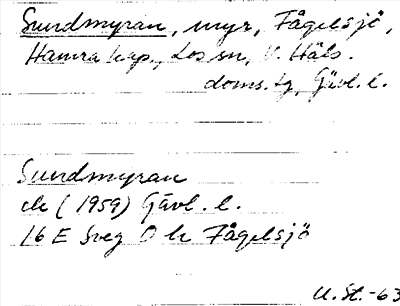 Sundmyran, myr, Fågelsjö,
Hamra kap., Los sn, V. Häls.
doms. tg, Gävl. l.
Sundmyran
ek (1959) Gävl. l.
16 E Sveg O k Fågelsjö
U. St. -63